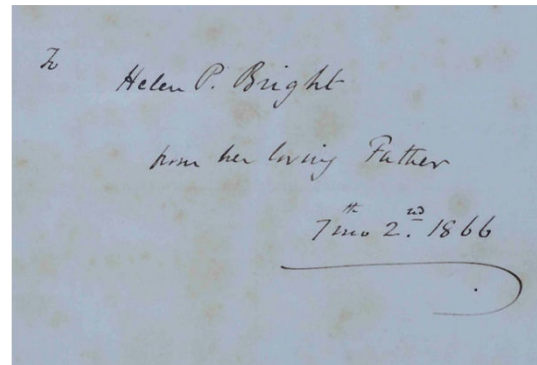 To
Helen P. Bright
from her loving Father
7th mo 2nd. 1866